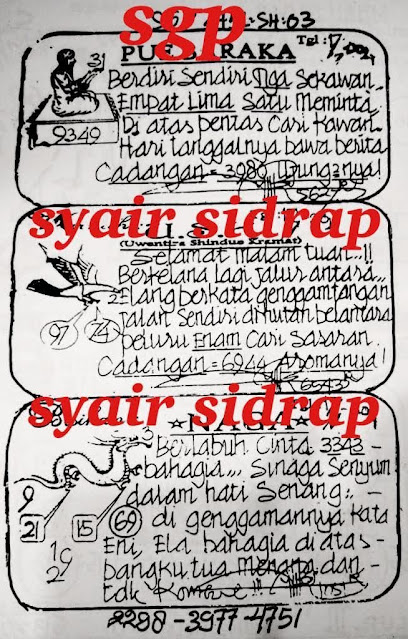 sgp
SH:03
Tgl: 7
31
Berdiri Sendiri Tiga Sekawan
Empat Lima Satu Meminta
Di atas pentas Cari Kawan
9349
Hari tanggalnya bawa berita
Cadangan = 3980
syair sidrap
(Uwentira Shindue Kramat)
Selamat malam tuan...!!
Berkelana lagi jalur antara...
2
Elang berkata genggam tangan
97
74
jalan Sendiri dihutan belantara
peluru Enam Cari Sasaran.
Cadangan = 6944 Aromanya!
6543
syair sidrap
NAGA
3
Berlabuh Cinta 3343 -
bahagia,,, Sinaga Senyum
9
dalam hati Senang :. -
21
15
69
di genggamannya Kata
19
Eni, Ela bahagia di atas -
2
bangku tua Menarta dan -
tdk
2298 - 3977 - 4751